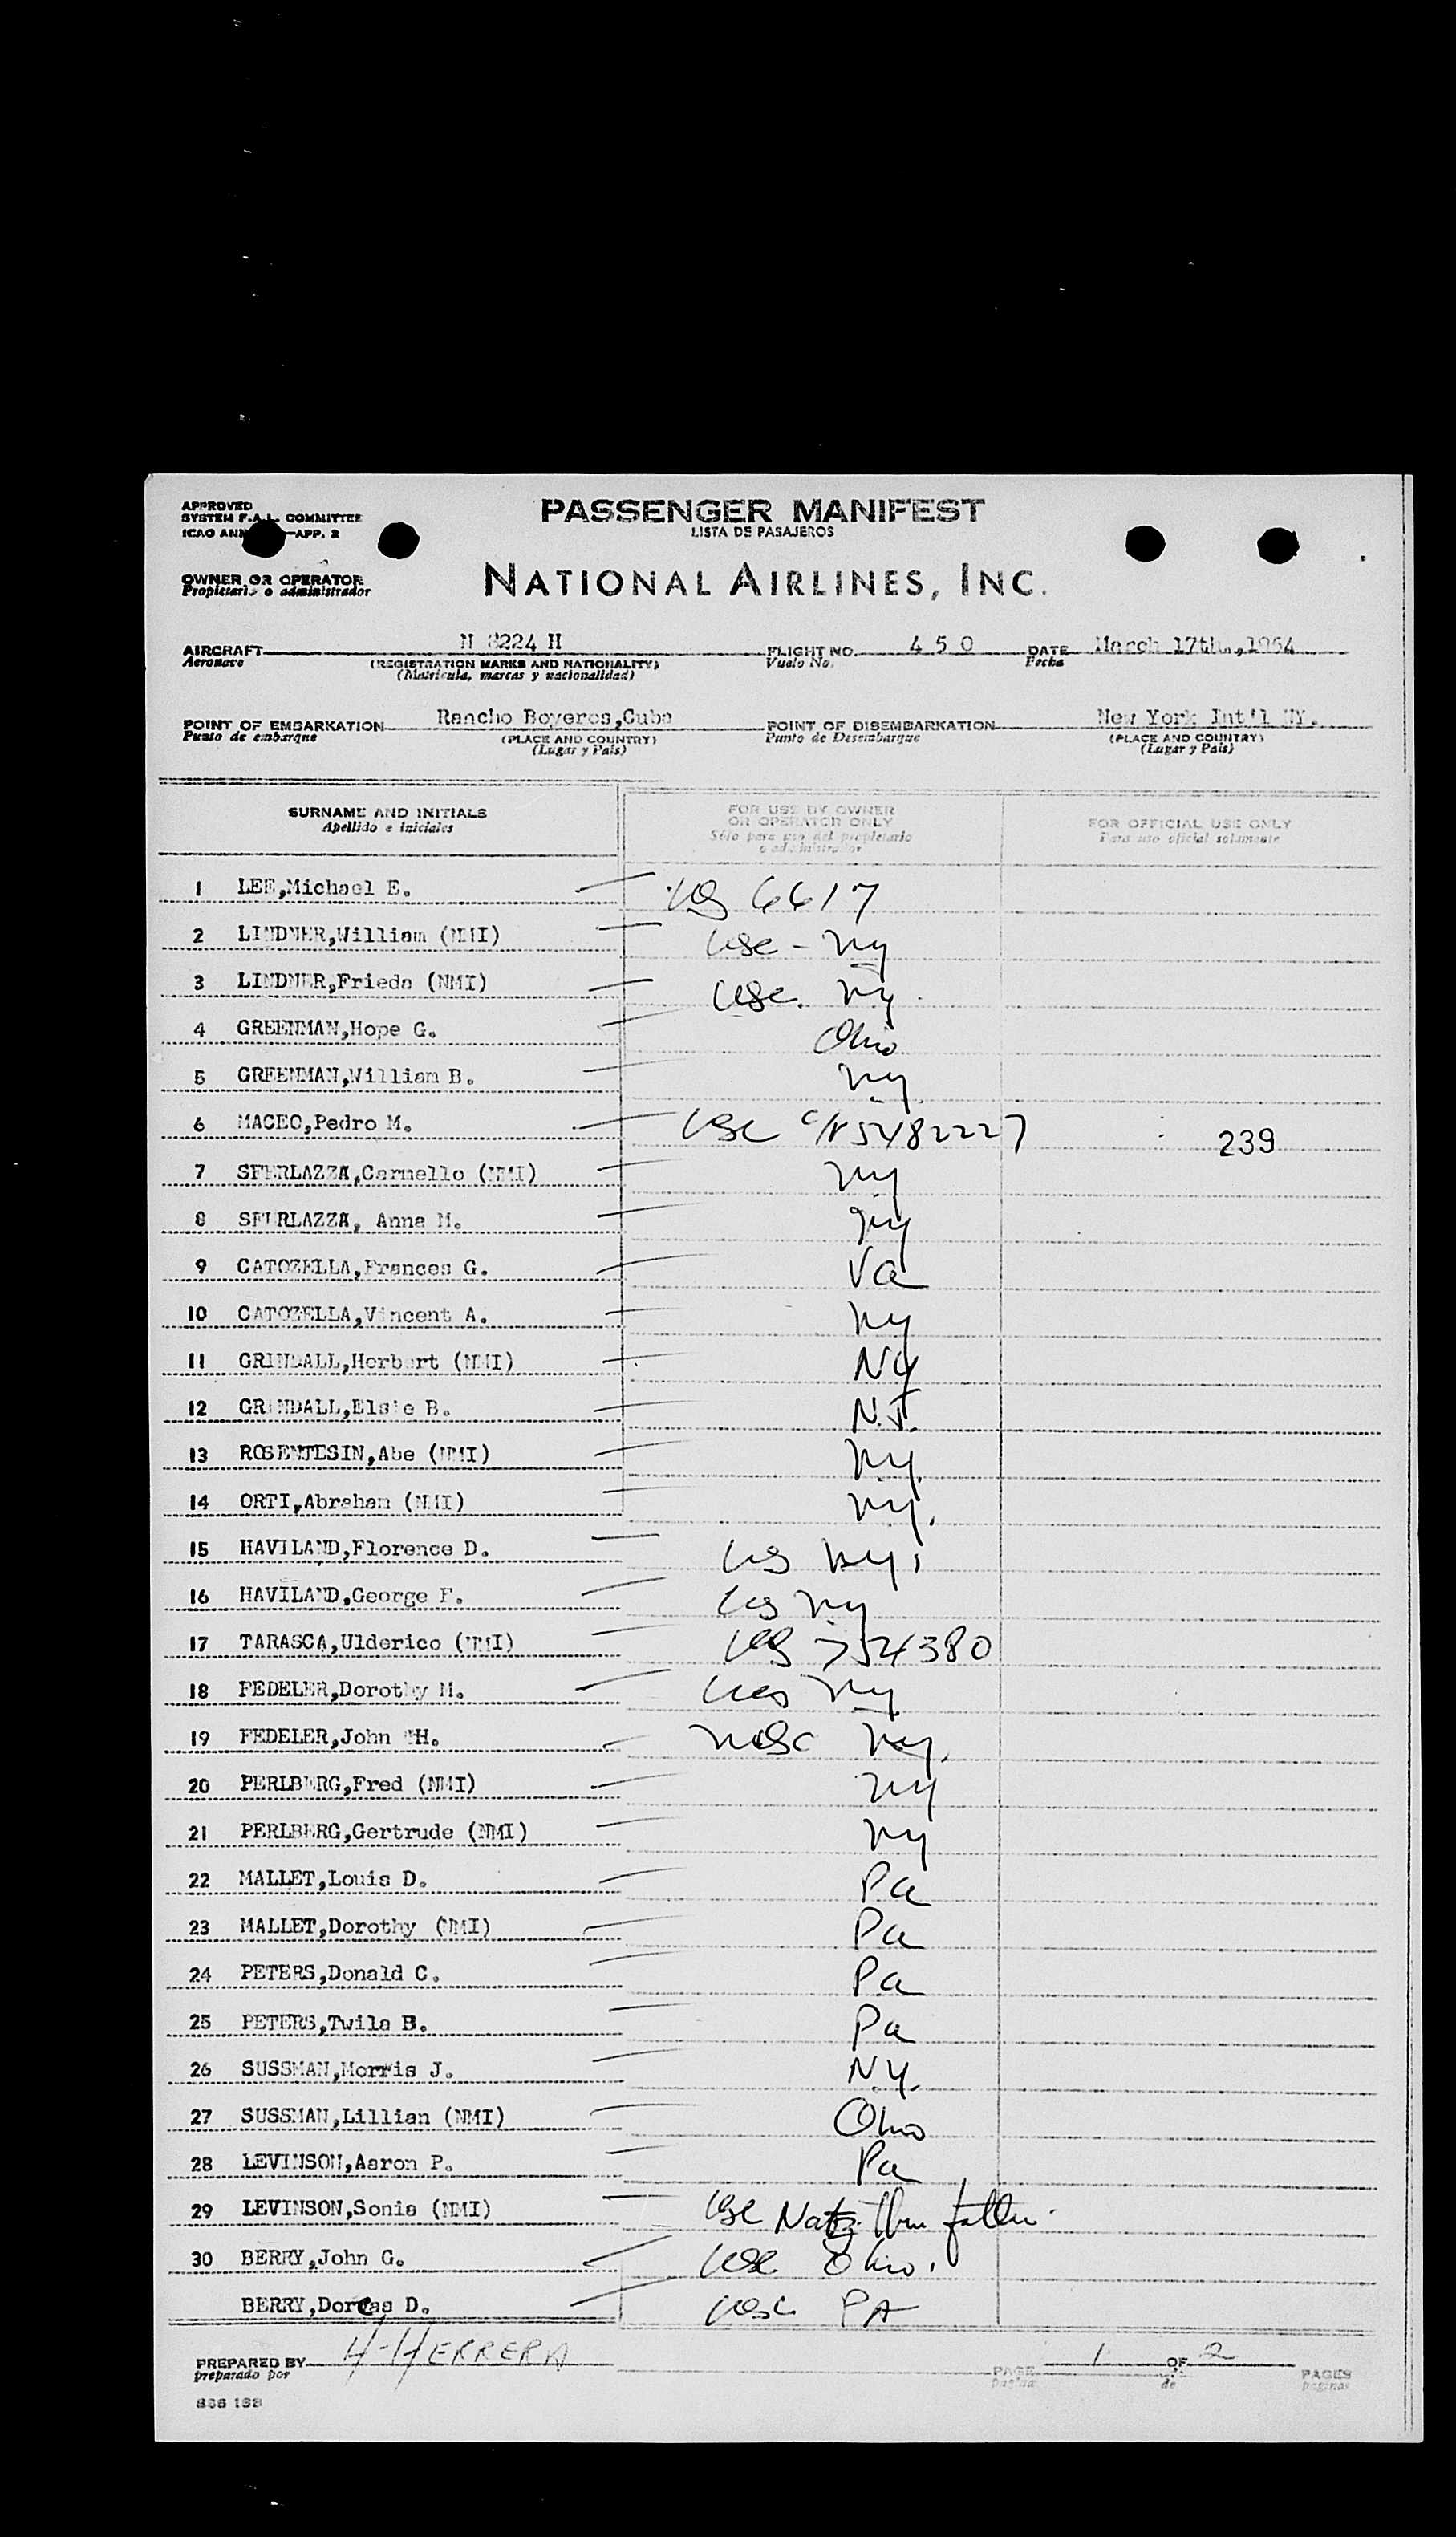 APPROVED
SYSTEM F.A.L. COMMITTEE
ICAO APP. 2
PASSENGER MANIFEST
LISTA DE PASAJEROS
OWNER OR OPERATOR
Propietario o administrador
NATIONAL AIRLINES, INC.
AIRCRAFT N 8224 H FLIGHT NO. 4 5 0 DATE March 17th.,1954
Aeronave (REGISTRATION MARKS AND NATIONALITY) Vuelo No. Fecha
(Matricula, marcas y nacionalidad)
POINT OF EMBARKATION Rancho Boyeros,Cuba POINT OF DISEMBARKATION New York Int'l NY.
Punto de embarque (PLACE AND COUNTRY) Punto de Desembarque (PLACE AND COUNTRY)
(Lugar y Pais) (Lugar y Pais)
SURNAME AND INITIALS
Apellido e iniciales
FOR USE BY OWNER
OR OPERATOR ONLY
Sólo para uso del propietario
o administrador
FOR OFFICIAL USE ONLY
Para uso oficial solamente
1 LEE,Michael E. US 6617
2 LINDNER,William (NMI) USC - NY
3 LINDNER,Frieda (NMI) USC. NY.
4 GREENMAN,Hope G. Ohio
5 GREENMAN,William B. NY.
6 MACEO,Pedro M. USC C/N 5482227 239
7 SFERLAZZA,Carmello (NMI) NY
8 SFERLAZZA, Anna M. NY
9 CATOZELLA,Frances G. Va
10 CATOZELLA,Vincent A. NY
11 GRINDALL,Herbert (NMI) NY
12 GRINDALL,Elsie B. N.J.
13 ROSENTESIN,Abe (NMI) NY.
14 ORTI,Abraham (NMI) NY.
15 HAVILAND,Florence D. US NY.
16 HAVILAND,George F. US NY
17 TARASCA,Ulderico (NMI) US 754380
18 FEDELER,Dorothy M. NY
19 FEDELER,John H. NY.
20 PERLBERG,Fred (NMI) NY
21 PERLBERG,Gertrude (NMI) NY
22 MALLET,Louis D. Pa
23 MALLET,Dorothy (NMI) Pa
24 PETERS,Donald C. Pa
25 PETERS,Twila B. Pa
26 SUSSMAN,Morris J. N.Y.
27 SUSSMAN,Lillian (NMI) Ohio
28 LEVINSON,Aaron P. Pa
29 LEVINSON,Sonia (NMI) USC Natz. thru father.
30 BERRY,John G. USC Ohio.
BERRY,Dorcas D. USC PA
PREPARED BY H-HERRERA PAGE 1 OF 2 PAGES
preparado por pagina de paginas